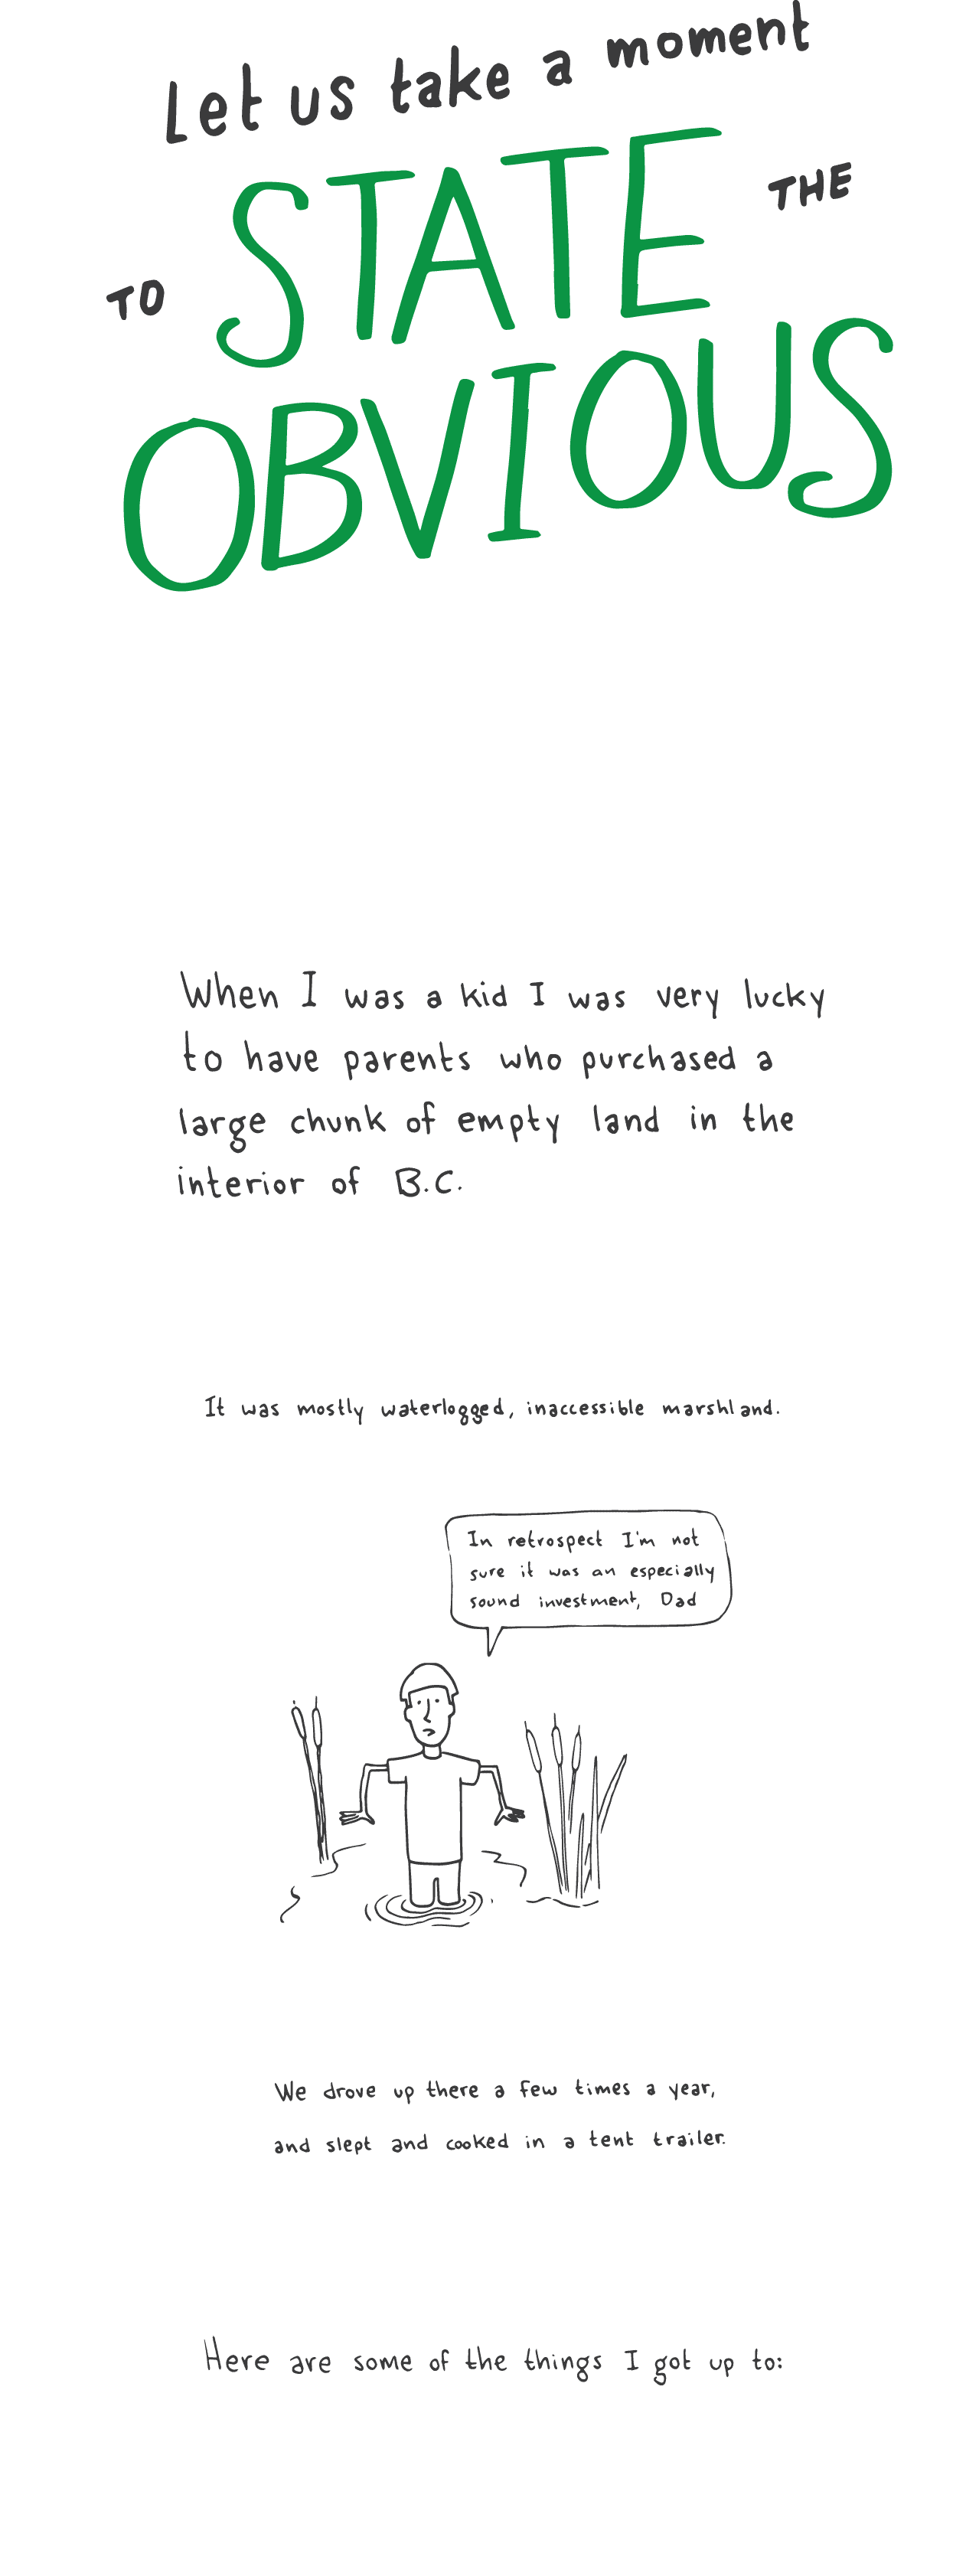 Let us take a moment
TO STATE THE
OBVIOUS
When I was a kid I was very lucky
to have parents who purchased a
large chunk of empty land in the
interior of B.C.
It was mostly waterlogged, inaccessible marshland.
In retrospect I'm not
sure it was an especially
sound investment, Dad
We drove up there a few times a year,
and slept and cooked in a tent trailer.
Here are some of the things I got up to: